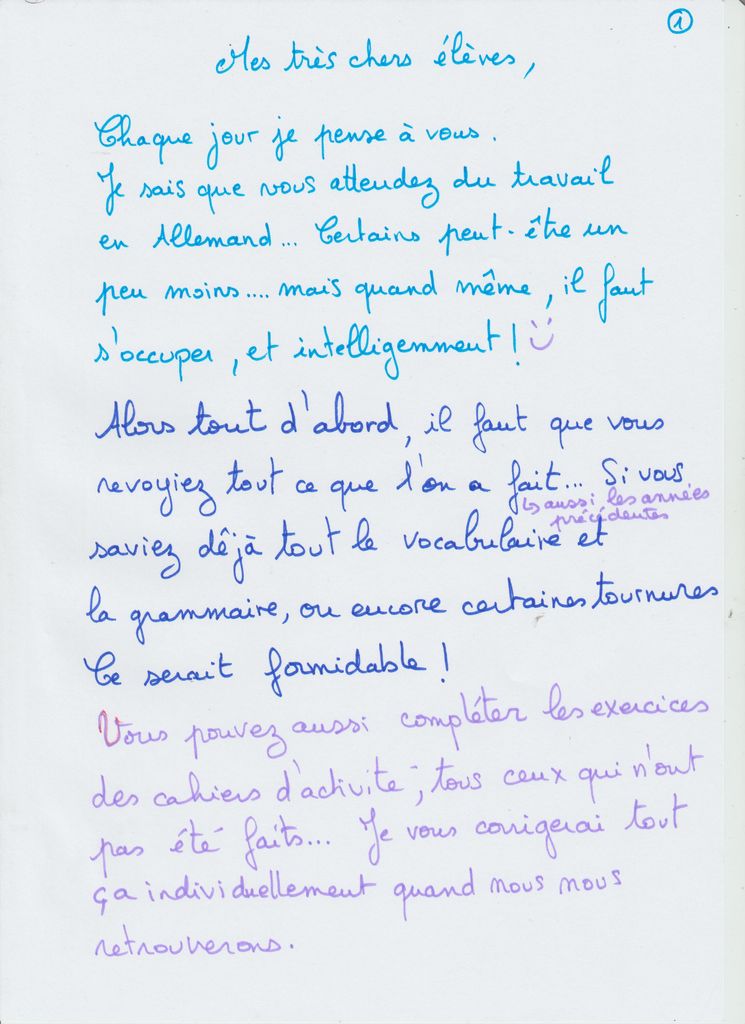 ①
Mes très chers élèves,
Chaque jour je pense à vous.
Je sais que vous attendez du travail
en Allemand... Certains peut-être un
peu moins.... mais quand même, il faut
s'occuper, et intelligemment ! :)
Alors tout d'abord, il faut que vous
revoyiez tout ce que l'on a fait... Si vous
↳ aussi les années
précédentes
saviez déjà tout le vocabulaire et
la grammaire, ou encore certaines tournures
Ce serait formidable !
Vous pouvez aussi compléter les exercices
des cahiers d'activité ; tous ceux qui n'ont
pas été faits... Je vous corrigerai tout
ça individuellement quand nous nous
retrouverons.